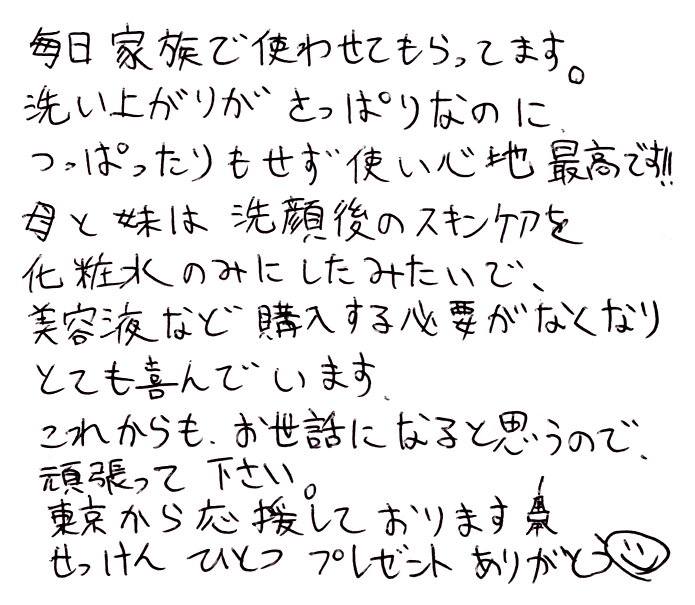 毎日家族で使わせてもらってます。
洗い上がりがさっぱりなのに
つっぱったりもせず使い心地最高です!!
母と妹は洗顔後のスキンケアを
化粧水のみにしたみたいで、
美容液など購入する必要がなくなり
とても喜んでいます、
これからも、お世話になると思うので、
頑張って下さい。
東京から応援しております
せっけんひとつプレゼントありがとう